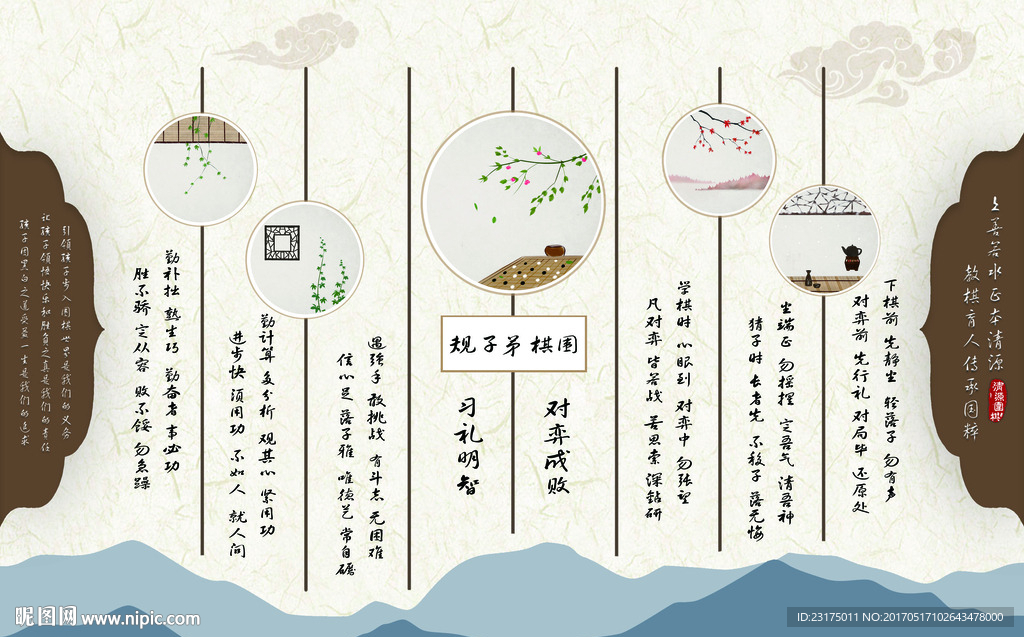 上善若水 正本清源
教棋育人 传承国粹
清源围棋
下棋前 先静坐 轻落子 勿有声
对弈前 先行礼 对局毕 还原处
坐端正 勿摇摆 定吾气 清吾神
猜子时 长者先 不移子 落无悔
学棋时 心眼到 对弈中 勿张望
凡对弈 皆苦战 苦思索 深钻研
围棋弟子规
对弈成败
习礼明智
遇强手 敢挑战 有斗志 无困难
信心足 落子雅 唯德艺 常自砺
勤计算 多分析 观其心 紧用功
进步快 须用功 不如人 就人问
勤补拙 熟生巧 勤奋者 事必功
胜不骄 定从容 败不馁 勿急躁
引领孩子步入围棋世界是我们的义务
让孩子领悟快乐和胜负之真是我们的责任
孩子用黑白之道受益一生是我们的追求
昵图网 www.nipic.com
ID:23175011 NO:20170517102643478000